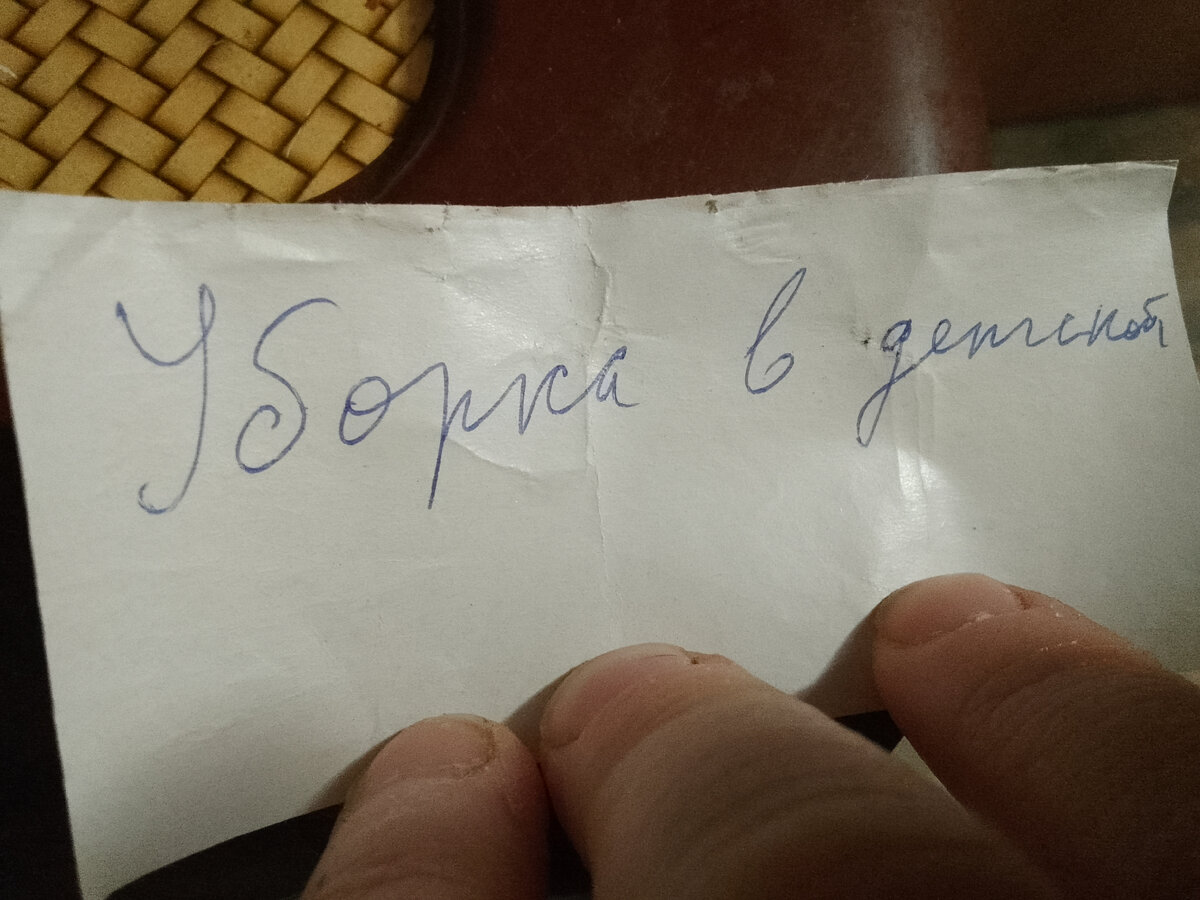 Уборка в детской